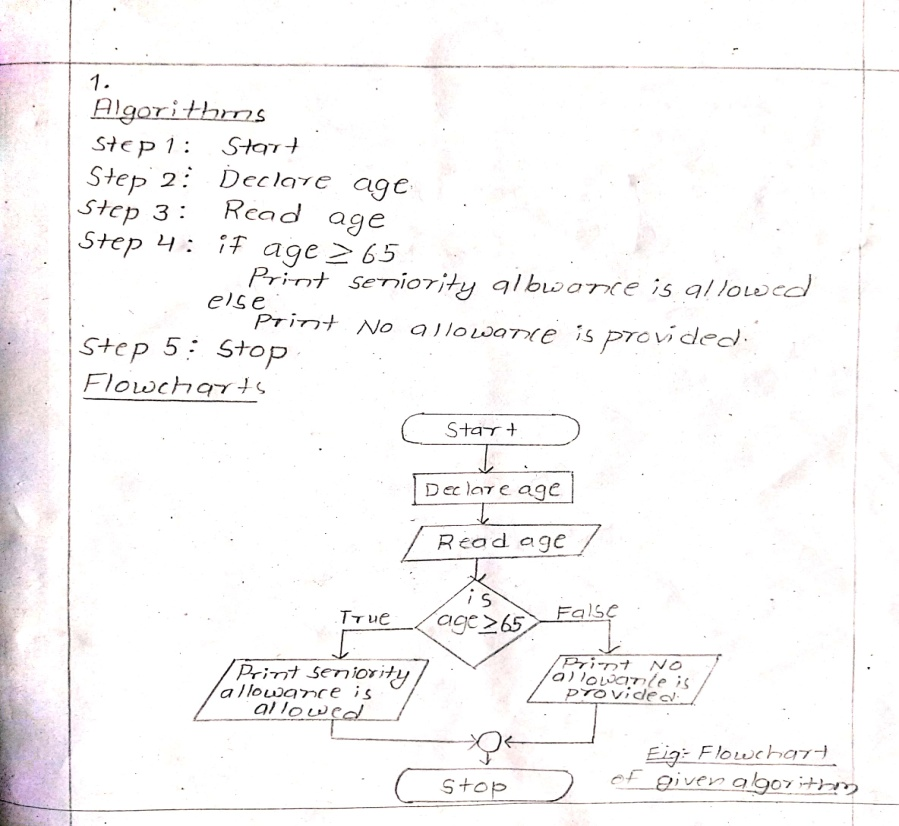 1.
Algorithms
Step 1: Start
Step 2: Declare age
Step 3: Read age
Step 4: if age ≥ 65
Print seniority allowance is allowed
else
Print No allowance is provided.
Step 5: Stop
Flowcharts
Start
Declare age
Read age
is
age ≥ 65
True
False
Print seniority
allowance is
allowed
Print No
allowance is
provided.
Stop
Fig:- Flowchart
of given algorithm